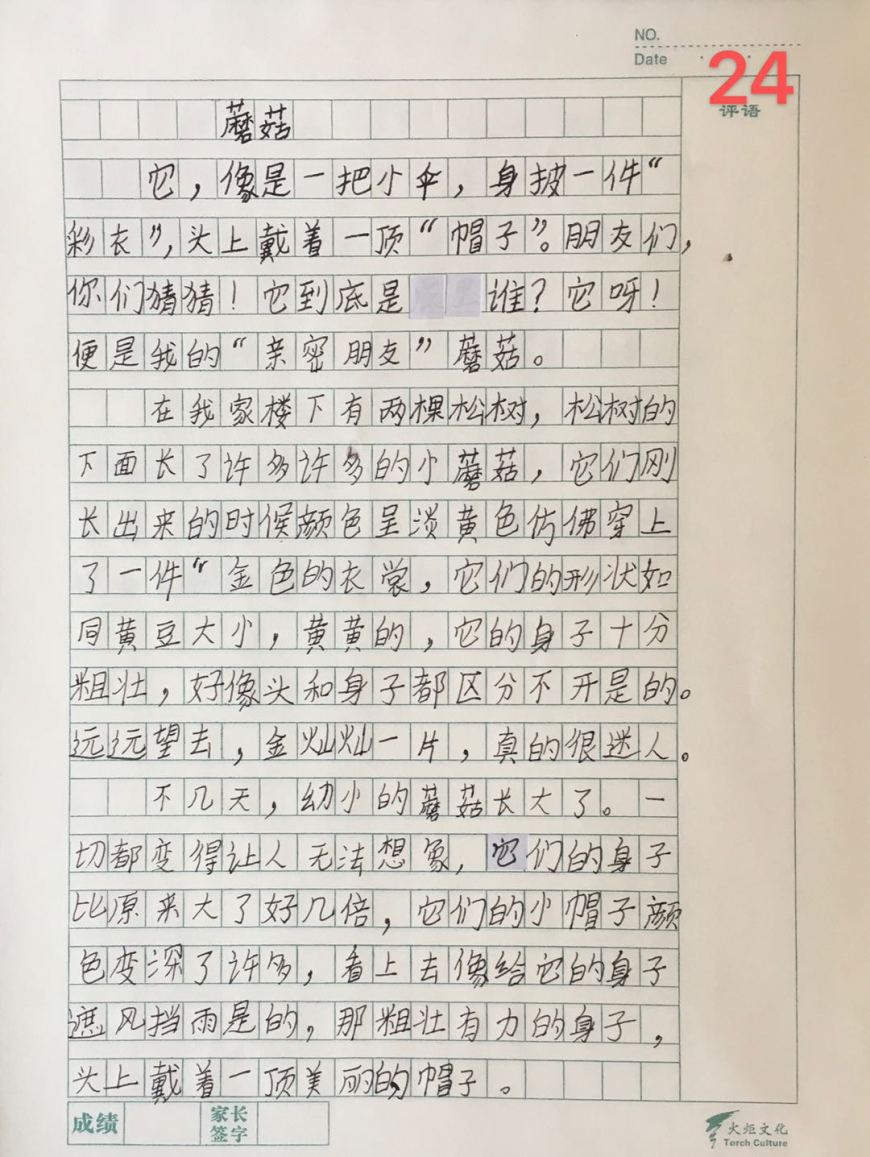 NO.
Date
24
评语
蘑菇
它，像是一把小伞，身披一件“
彩衣”，头上戴着一顶“帽子”。朋友们，
你们猜猜！它到底是谁？它呀！
便是我的“亲密朋友”蘑菇。
在我家楼下有两棵松树，松树的
下面长了许多许多的小蘑菇，它们刚
长出来的时候颜色呈淡黄色仿佛穿上
了一件“金色的衣裳，它们的形状如
同黄豆大小，黄黄的，它的身子十分
粗壮，好像头和身子都区分不开是的。
远远望去，金灿灿一片，真的很迷人。
不几天，幼小的蘑菇长大了。一
切都变得让人无法想象，它们的身子
比原来大了好几倍，它们的小帽子颜
色变深了许多，看上去像给它的身子
遮风挡雨是的，那粗壮有力的身子，
头上戴着一顶美丽的帽子。
成绩
家长
签字
火炬文化
Torch Culture